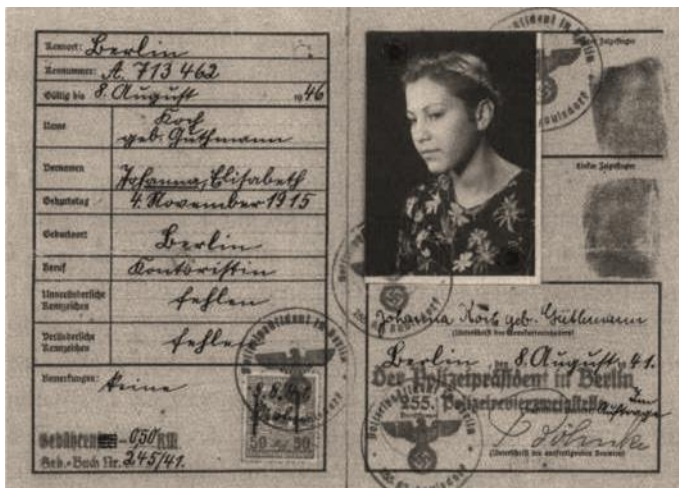 Kennort: Berlin
Kennnummer: A. 713 462
Gültig bis 8. August 1946
Name Koch
geb. Guthmann
Vornamen Johanna, Elisabeth
Geburtstag 4. November 1915
Geburtsort Berlin
Beruf Kontoristin
Unveränderliche Kennzeichen fehlen
Veränderliche Kennzeichen fehlen
Bemerkungen: Keine
Gebühren 050 RM
Geb.-Buch Nr. 245/41.
50 50
Polizeipräsident in Berlin
Rechter Zeigefinger
Linker Zeigefinger
Johanna Koch geb. Guthmann
(Unterschrift des Kennkarteninhabers)
Berlin, den 8. August 41.
Der Polizeipräsident in Berlin
255. Polizeirevierzweigstelle
Im Auftrage
(Unterschrift des ausfertigenden Beamten)